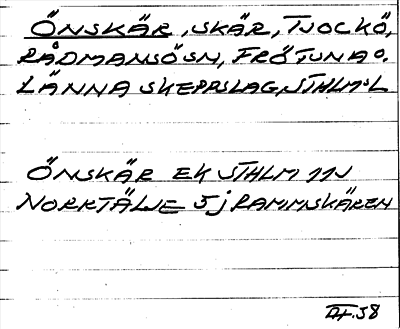 ÖNSKÄR, SKÄR, TJOCKÖ,
RÅDMANSÖSN, FRÖTUNA O.
LÄNNA SKEPPSLAG, STHLMS L
ÖNSKÄR EK STHLM 11J
NORRTÄLJE 5j RAMMSKÄREN
III.58